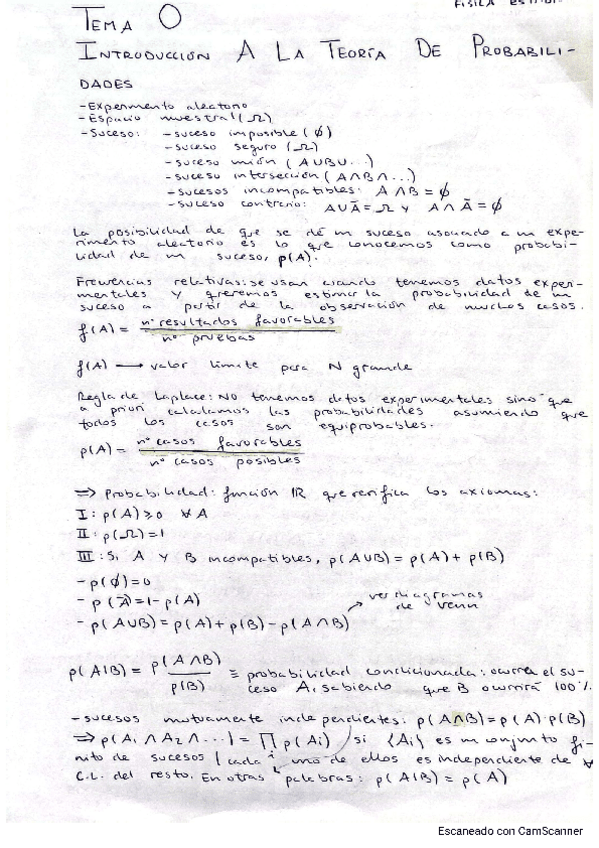 FISICA ESTADI-
TEMA 0
INTRODUCCIÓN A LA TEORÍA DE PROBABILI-
DADES
- Experimento aleatorio
- Espacio muestral (Ω)
- Suceso: - suceso imposible (∅)
- suceso seguro (Ω)
- suceso unión (A∪B∪...)
- suceso intersección (A∩B∩...)
- sucesos incompatibles: A∩B = ∅
- suceso contrario: A∪Ā = Ω y A∩Ā = ∅
La posibilidad de que se dé un suceso asociado a un expe-
rimento aleatorio es lo que conocemos como probabi-
lidad de un suceso, p(A).
Frecuencias relativas: se usan cuando tenemos datos exper-
mentales y queremos estimar la probabilidad de un
suceso a partir de la observación de muchos casos.
f(A) = nº resultados favorables / nº pruebas
f(A) → valor límite para N grande
Regla de Laplace: NO tenemos datos experimentales sino que
a priori calculamos las probabilidades asumiendo que
todos los casos son equiprobables.
p(A) = nº casos favorables / nº casos posibles
⇒ Probabilidad: función ℝ que verifica los axiomas:
I: p(A) ≥ 0 ∀A
II: p(Ω) = 1
III: Si A y B incompatibles, p(A∪B) = p(A) + p(B)
- p(∅) = 0
- p(Ā) = 1 - p(A)
- p(A∪B) = p(A) + p(B) - p(A∩B) → ver diagramas de Venn
p(A|B) = p(A∩B) / p(B) ≡ probabilidad condicionada: ocurra el su-
ceso A, sabiendo que B ocurrirá 100%.
- sucesos mutuamente independientes: p(A∩B) = p(A)·p(B)
⇒ p(A₁∩A₂∩...) = ∏ᵢ p(Aᵢ) si {Aᵢ} es un conjunto fi-
nito de sucesos / cada uno de ellos es independiente de ∀
C.L. del resto. En otras palabras: p(A|B) = p(A)
Escaneado con CamScanner